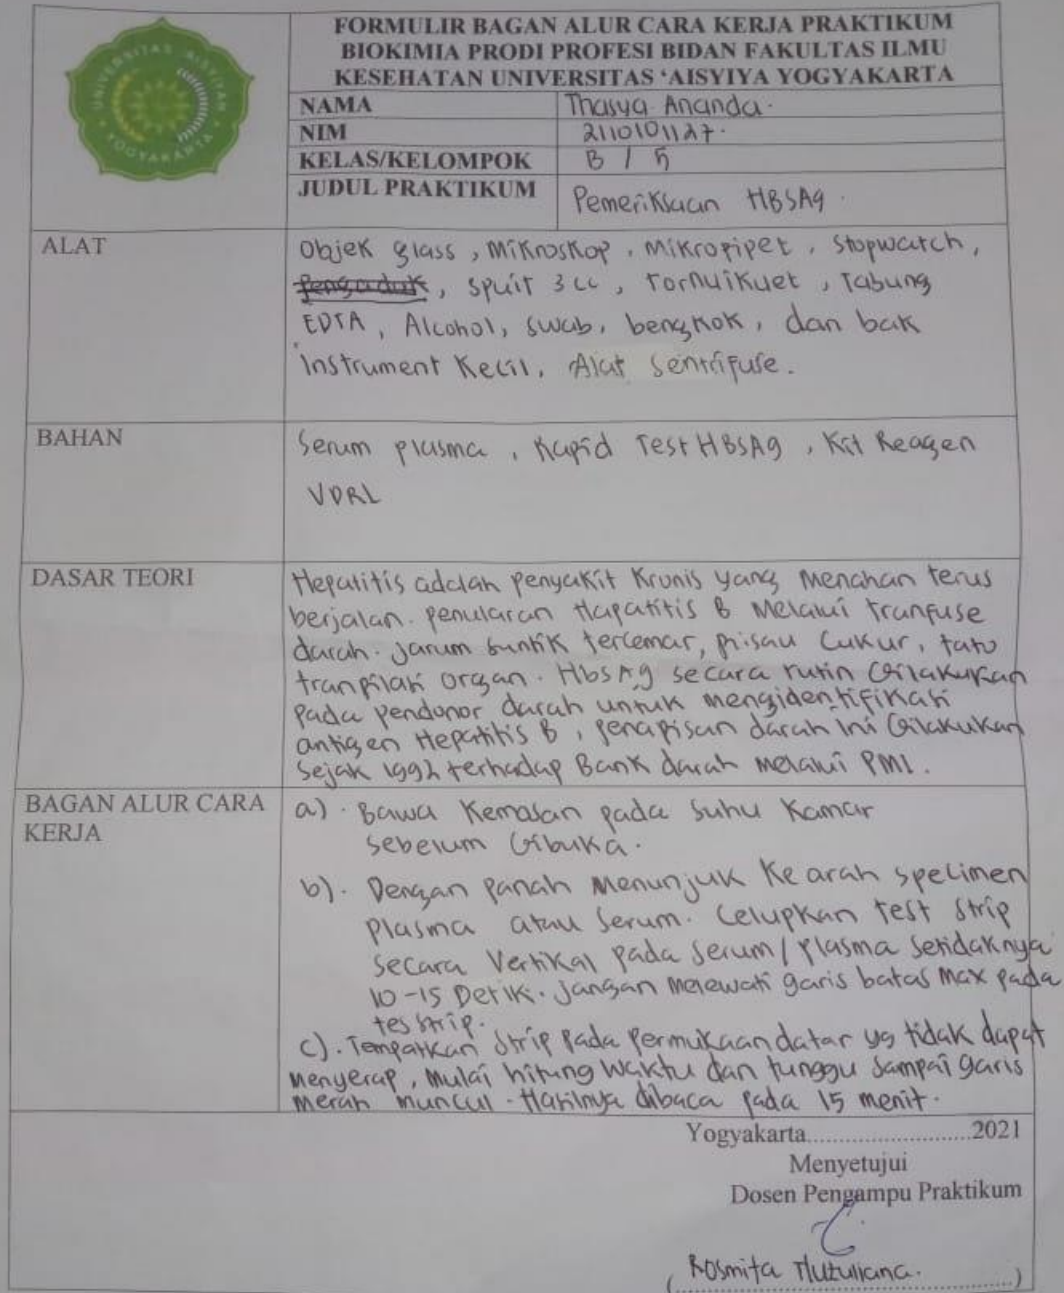 UNIVERSITAS 'AISYIYAH
YOGYAKARTA
FORMULIR BAGAN ALUR CARA KERJA PRAKTIKUM
BIOKIMIA PRODI PROFESI BIDAN FAKULTAS ILMU
KESEHATAN UNIVERSITAS 'AISYIYA YOGYAKARTA
NAMA Thasya Ananda.
NIM 2110101127.
KELAS/KELOMPOK B / 5
JUDUL PRAKTIKUM Pemeriksaan HBSAg.
ALAT
Objek glass, Mikroskop, Mikropipet, Stopwatch,
Pengaduk, Spuit 3 cc, Tornuikuet, Tabung
EDTA, Alcohol, swab, bengkok, dan bak
Instrument Kecil. Alat Sentrifuse.
BAHAN
Serum plasma, Rapid Test HBSAg, Kit Reagen
VDRL
DASAR TEORI
Hepatitis adalah penyakit Kronis yang Menahan terus
berjalan. penularan Hapatitis B Melalui tranfuse
darah. Jarum suntik tercemar, pisau Cukur, tato
tranpilasi organ. HbsAg secara rutin dilakukan
pada pendonor darah untuk mengidentifikasi
antigen Hepatitis B, penapisan darah ini dilakukan
sejak 1992 terhadap Bank darah melalui PMI.
BAGAN ALUR CARA
KERJA
a). Bawa Kemasan pada Suhu Kamar
sebelum dibuka.
b). Dengan panah Menunjuk Ke arah spelimen
plasma atau Serum. Celupkan test strip
secara Vertikal pada serum/plasma setidaknya
10-15 Detik. Jangan melewati garis batas max pada
tes strip.
c). Tempatkan strip pada permukaan datar yg tidak dapat
menyerap, mulai hitung waktu dan tunggu sampai garis
merah muncul. Hasilnya dibaca pada 15 menit.
Yogyakarta..........................2021
Menyetujui
Dosen Pengampu Praktikum
(Rosmita Nuzuliana.)